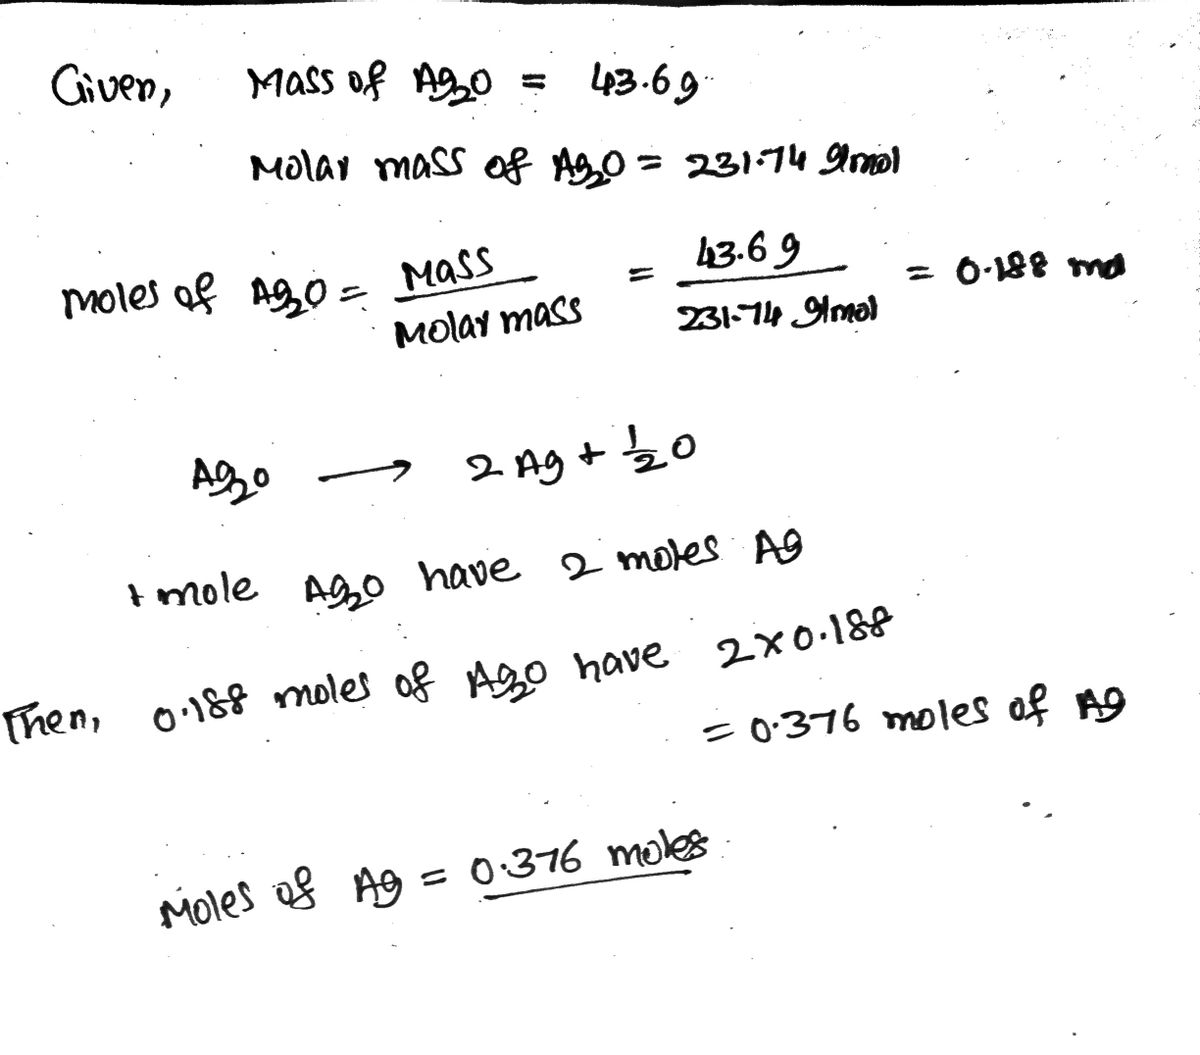 Given, Mass of Ag₂O = 43.6 g
Molar mass of Ag₂O = 231.74 g/mol
moles of Ag₂O = Mass / Molar mass = 43.6 g / 231.74 g/mol = 0.188 mol
Ag₂O → 2 Ag + 1/2 O
1 mole Ag₂O have 2 moles Ag
Then, 0.188 moles of Ag₂O have 2×0.188
= 0.376 moles of Ag
Moles of Ag = 0.376 moles